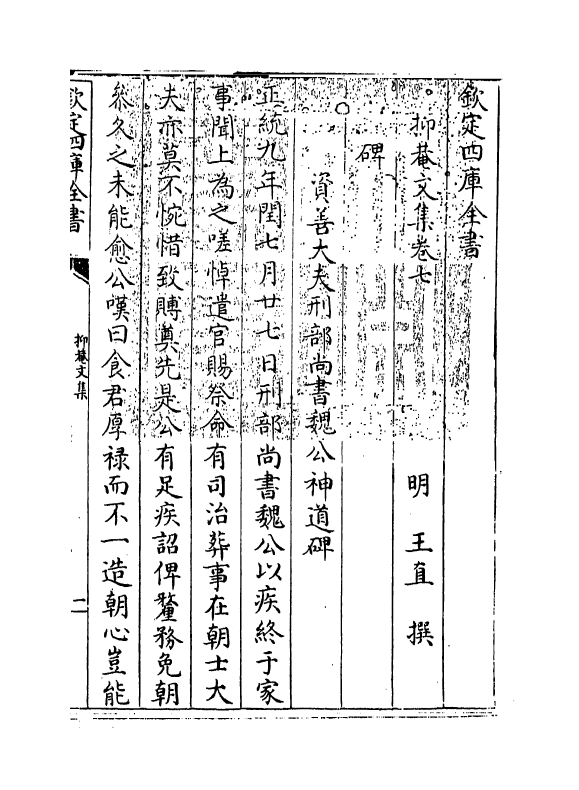 欽定四庫全書
抑菴文集卷七
明 王直 撰
碑
資善大夫刑部尚書魏公神道碑
正統九年閏七月廿七日刑部尚書魏公以疾終于家
事聞上為之嗟悼遣官賜祭命有司治葬事在朝士大
夫亦莫不惋惜致賻奠先是公有足疾詔俾釐務免朝
叅久之未能愈公嘆曰食君厚禄而不一造朝心豈能
欽定四庫全書
抑菴文集